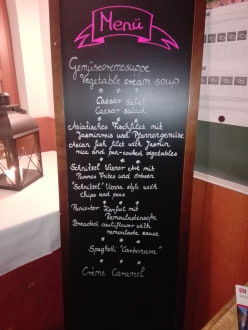 Menü
Gemüsecremesuppe
Vegetable cream soup
Caesar salat
Caesar salad
Asiatisches Fischfilet mit
Jasminreis und Pfannengemüse
Asian fish filet with Jasmin
rice and pan-cooked vegetables
Schnitzel Wiener Art mit
Pommes Frites und Erbsen
"Schnitzel" Vienna style with
chips and peas
Panierter Karfiol mit
Remouladensoße
Breaded cauliflower with
remoulade sauce
Spaghetti "Carbonara"
Crème Caramel